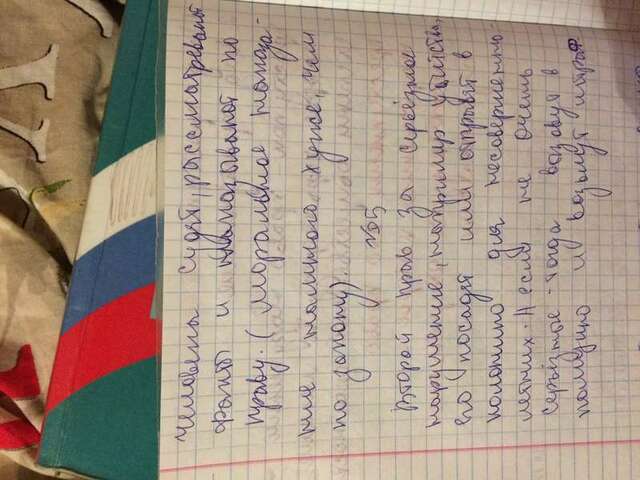 человека судят, рассматревают
факты и наказывают по
праву. (моральное наказа-
ние намного хуже, чем
по закону).
№5
Второй прав за серьёзное
нарушение, например убийства,
его посадят или отправят в
колонию для несовершенно-
летних. А если не очень
серьёзные - тогда вызовут в
полицию и возьмут штраф